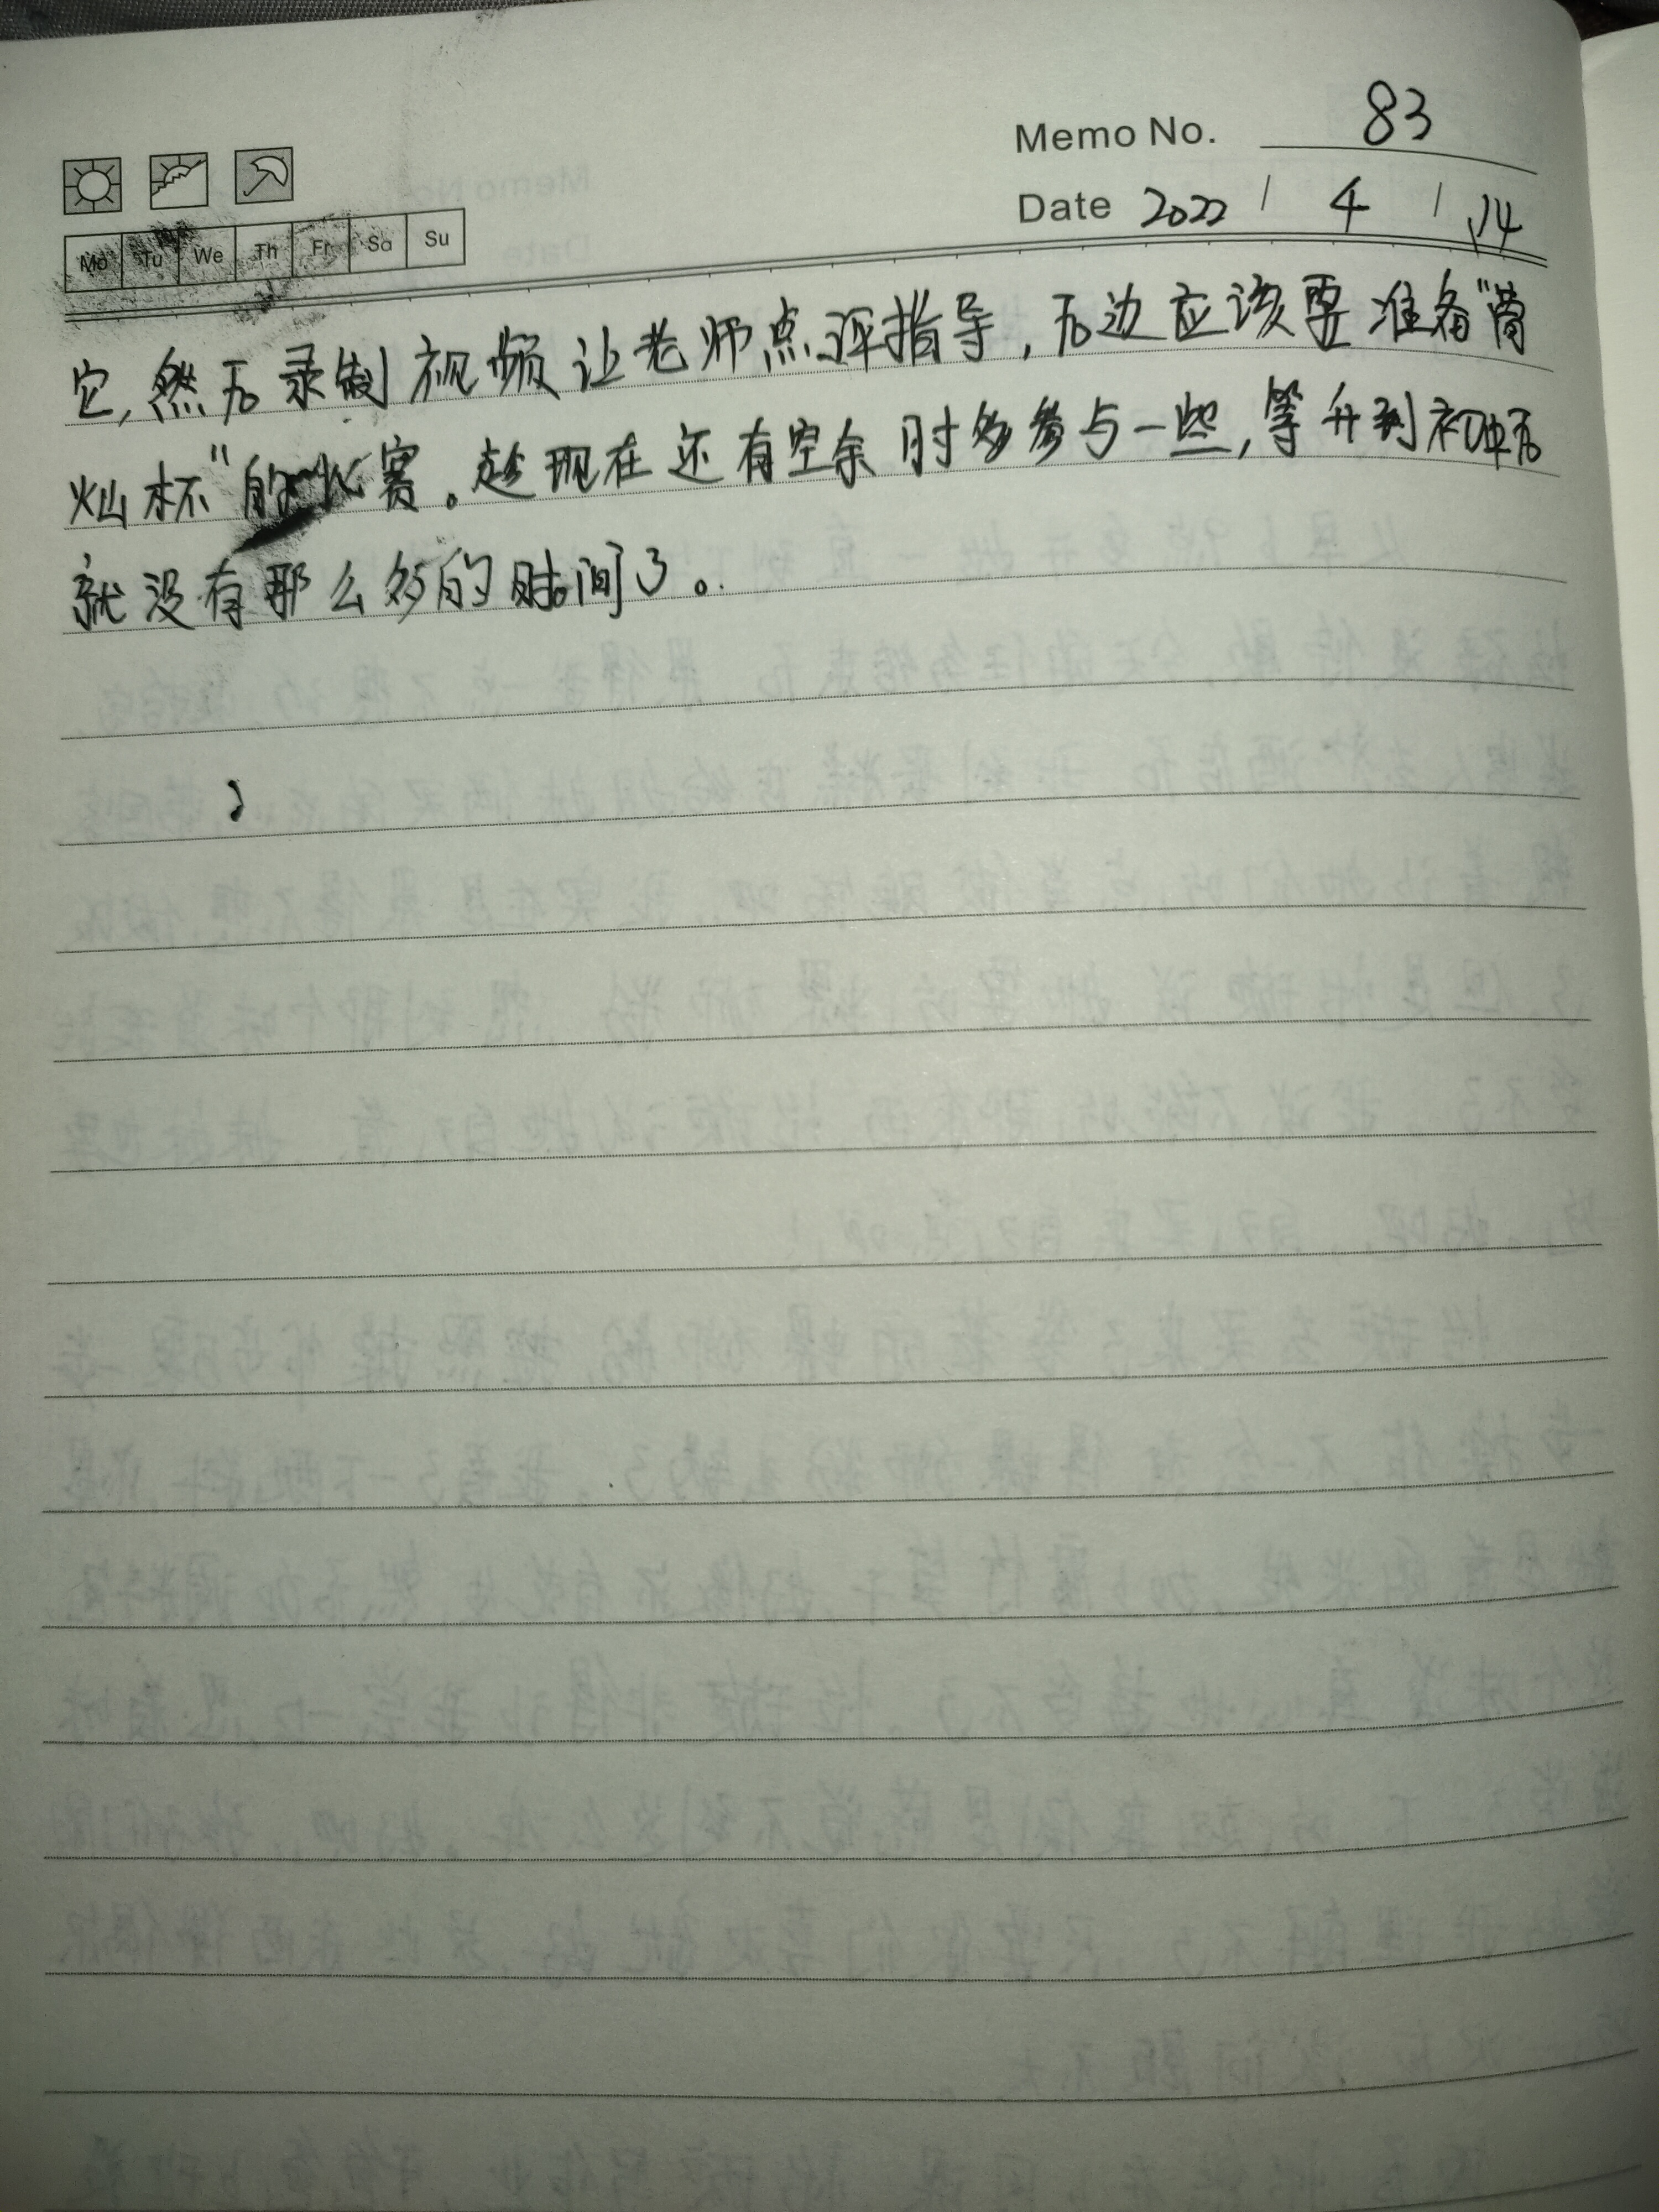 Memo No. 83
Date 2022 / 4 / 14
Mo Tu We Th Fr Sa Su
它,然后录制视频让老师点评指导,后边应该要准备"菁
灿杯"的比赛。趁现在还有空余时多参与一些,等升到初中后
就没有那么多的时间了。